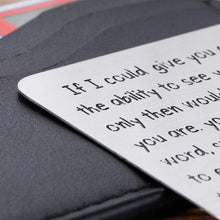 If I could give you
the ability to see
only then would
you are. you
word, s
to e